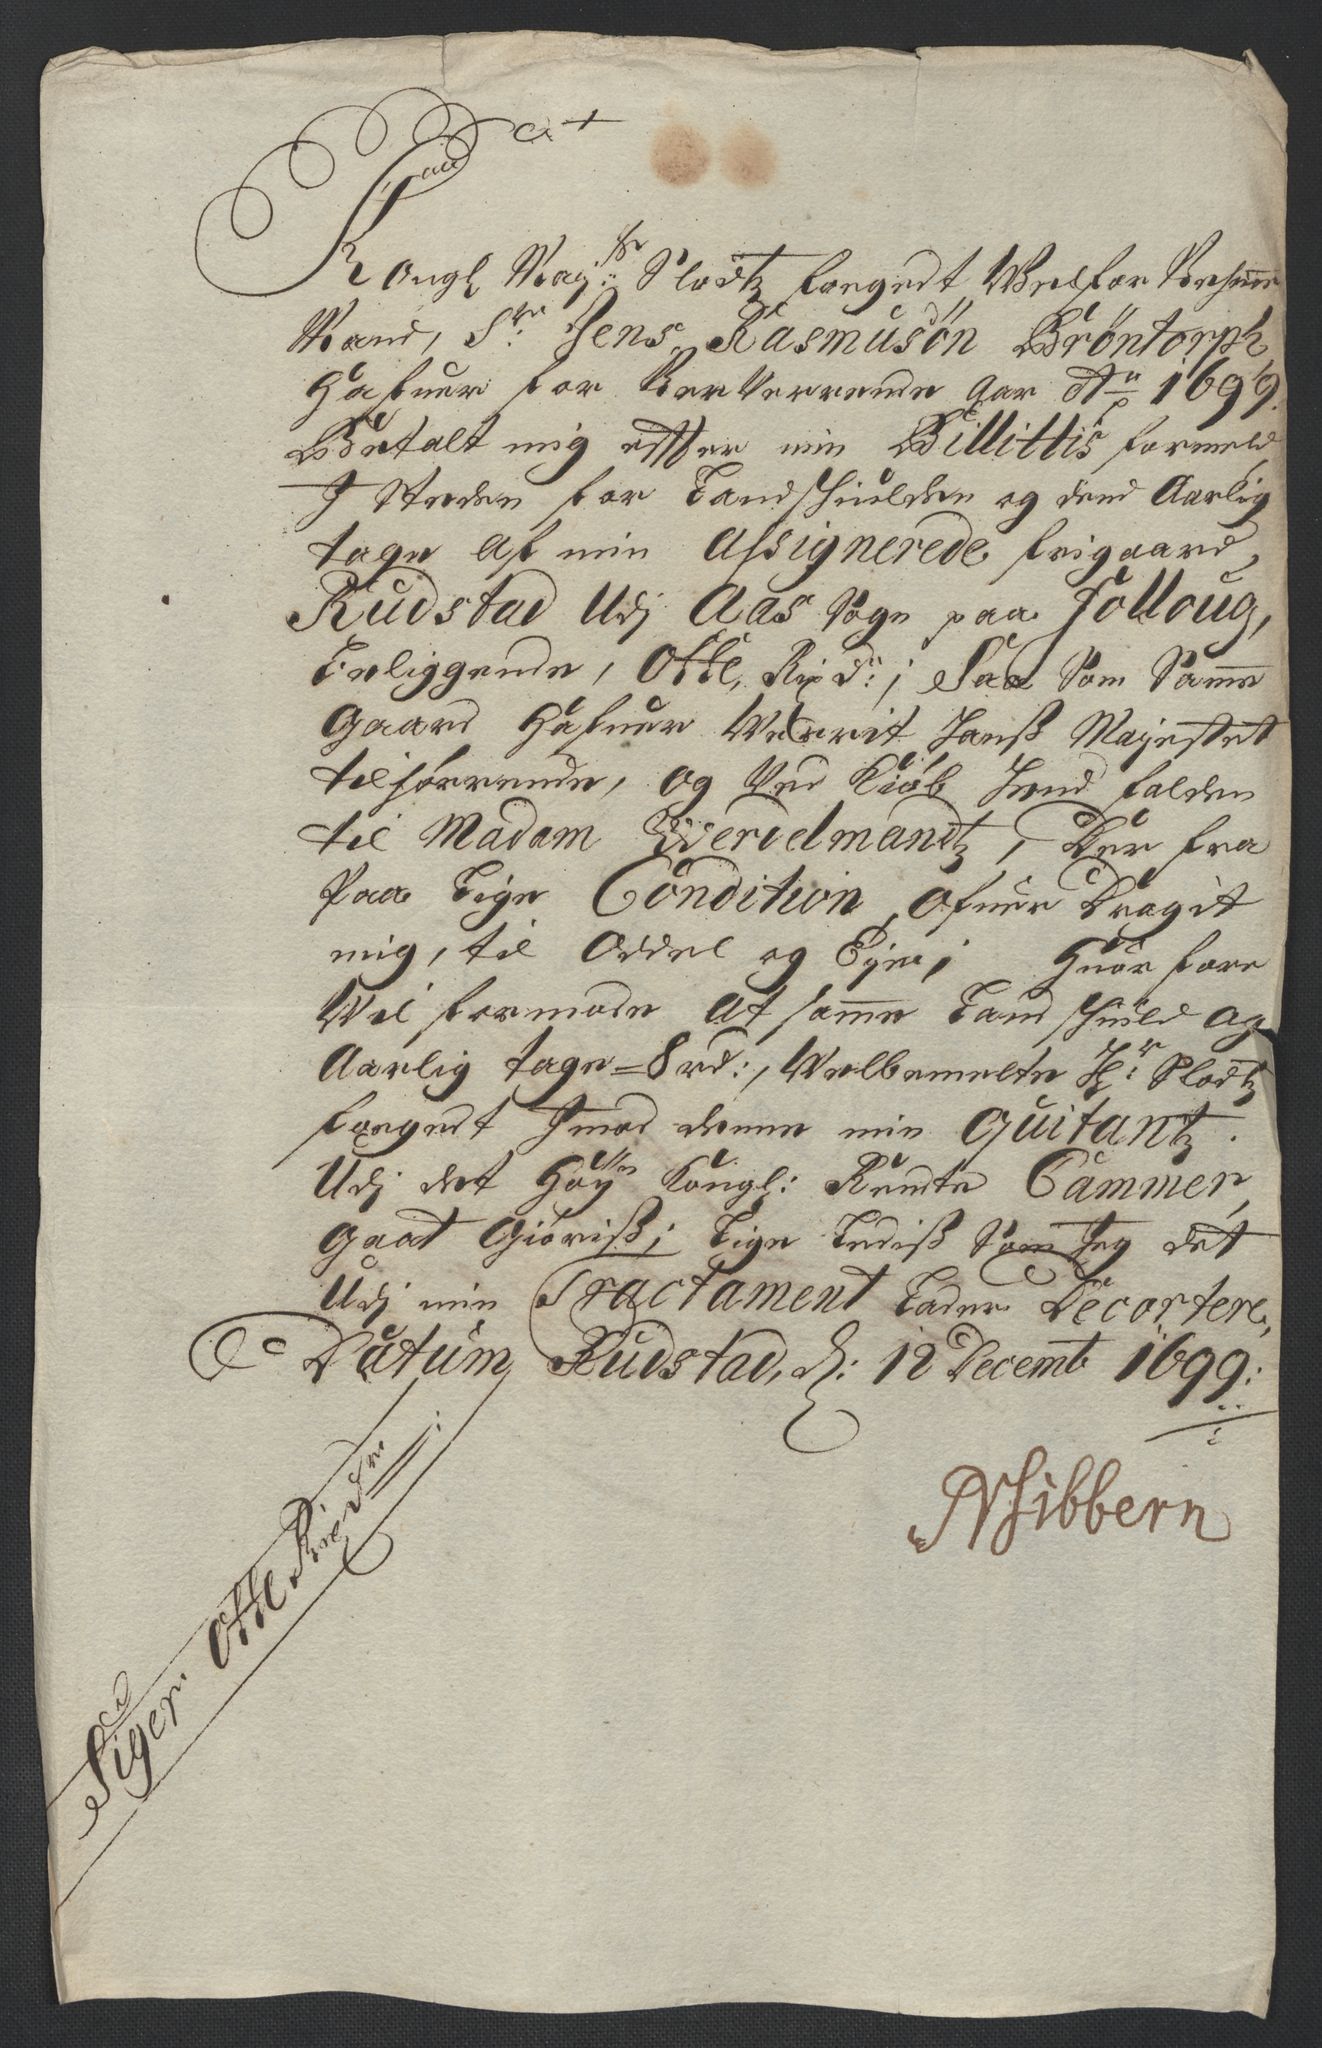 Kongl Maytz Slodtz fougedt Welfor Nehme
Mand, Sr: Jens Rasmusøn Bröntorph
Hafuer for Nerverrende Aar Ao 1699.
Betalt mig effter min Billittis formeld
J Steden for Landschulden og dend Aarlig
tage af min Assignerede frigaard,
Rudstad Udj Aas Sogn paa folloug,
beliggende, Otte, Rixdr:; Saa Som Samme
Gaard Hafuer Werrit Hans Majestet
tilhørrende, og Ved Kiøb Hend falden
til Madam Werdelmandtz, Der fra
Paa Lige Condition, Ofuer Dragit
mig, til Oddel og Eye; Huor fore
Vil formode At samme Landschuld og
Aarlig tage = 8 rd:, Welbemelte Hr: Slodtz
fougedt Jmod denne min Quitantz.
Udj det Høye Kongl: Rendte Cammer,
Gaat Giøriß; Lige Ledis Som Jeg det
Udj min Tractament Lader Decortere,
Datum Rudstad, d: 12 Decemb 1699:
NHibbern
Siger Otte Rixdr